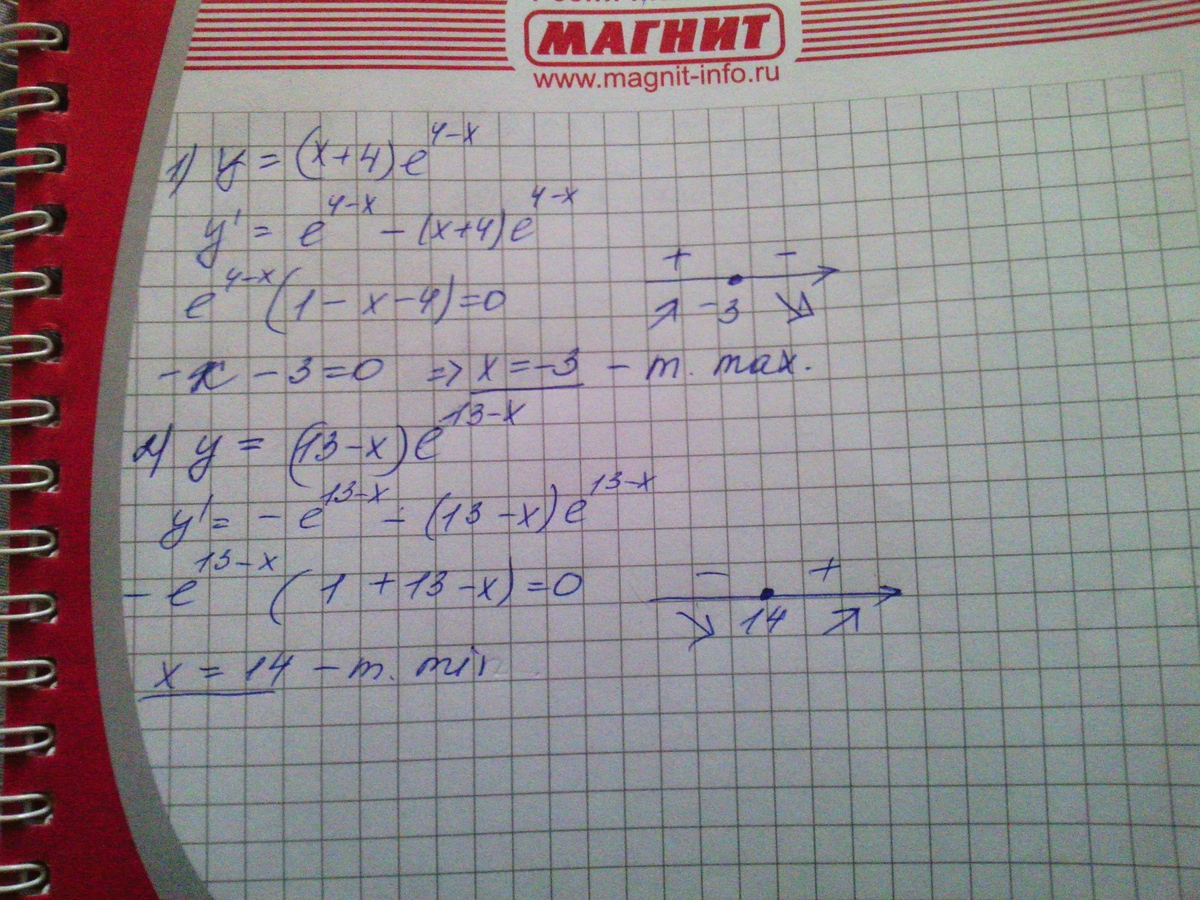 МАГНИТ
www.magnit-info.ru
1) y = (x+4)e^{4-x}
y' = e^{4-x} - (x+4)e^{4-x}
e^{4-x}(1-x-4)=0
+ -
-3
-x-3=0 => x=-3 - т. max.
2) y = (13-x)e^{13-x}
y' = -e^{13-x} - (13-x)e^{13-x}
-e^{13-x}(1+13-x)=0
- +
14
x = 14 - т. min